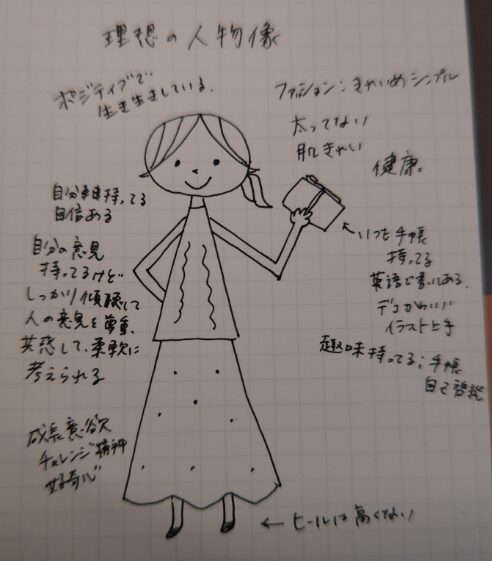 理想の人物像
ポジティブで
生き生きしている。
ファッション：きれいめシンプル
太ってない
肌きれい
健康。
自分軸持ってる
自信ある
自分の意見
持ってるけど
しっかり傾聴して
人の意見を尊重、
共感して、柔軟に
考えられる
←いつも手帳
持ってる
英語で書いてある。
デコかわいい
イラスト上手
趣味持ってる：手帳
自己啓発
成長意欲
チャレンジ精神
好奇心
←ヒールは高くない